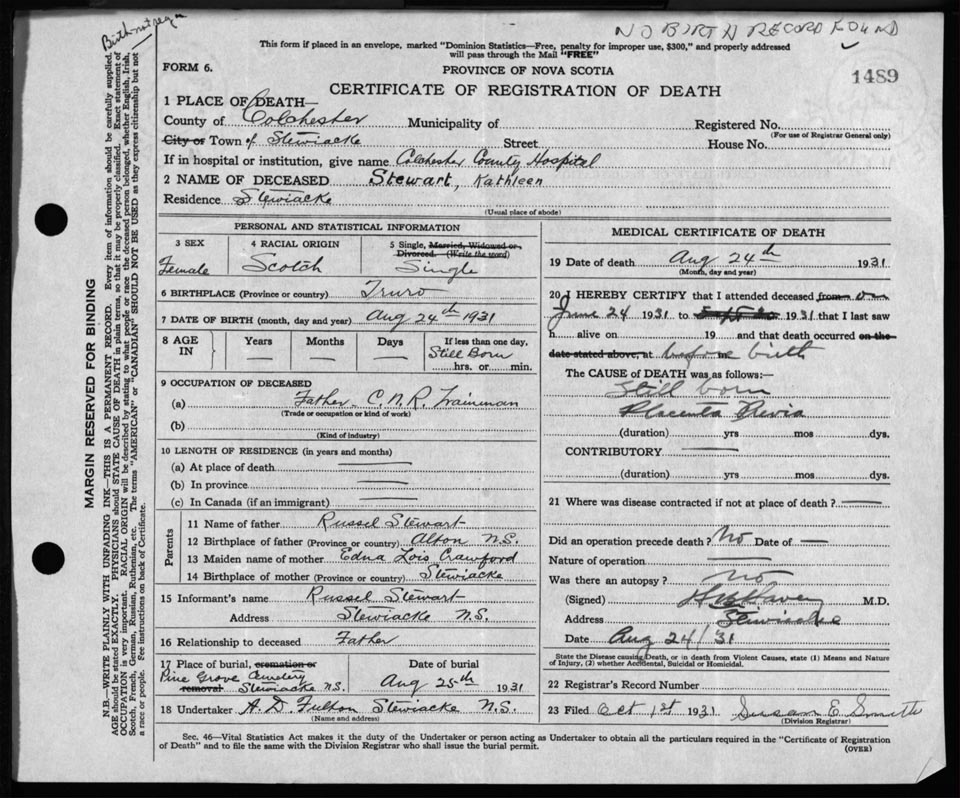 Birth not reg'd
NO BIRTH RECORD FOUND
This form if placed in an envelope, marked "Dominion Statistics—Free, penalty for improper use, $300," and properly addressed
will pass through the Mail "FREE"
FORM 6.
PROVINCE OF NOVA SCOTIA
1489
CERTIFICATE OF REGISTRATION OF DEATH
1 PLACE OF DEATH—
County of Colchester Municipality of Registered No.
(For use of Registrar General only)
City or Town of Stewiacke Street House No.
If in hospital or institution, give name Colchester County Hospital
2 NAME OF DECEASED Stewart, Kathleen
Residence Stewiacke
(Usual place of abode)
PERSONAL AND STATISTICAL INFORMATION
3 SEX
Female
4 RACIAL ORIGIN
Scotch
5 Single, Married, Widowed or
Divorced. (Write the word)
Single
6 BIRTHPLACE (Province or country) Truro
7 DATE OF BIRTH (month, day and year) Aug 24th 1931
8 AGE IN
Years
Months
Days
If less than one day,
Still Born
hrs. or min.
9 OCCUPATION OF DECEASED
(a) Father C.N.R. Trainman
(Trade or occupation or kind of work)
(b)
(Kind of industry)
10 LENGTH OF RESIDENCE (in years and months)
(a) At place of death
(b) In province
(c) In Canada (if an immigrant)
Parents
11 Name of father Russel Stewart
12 Birthplace of father (Province or country) Alton N.S.
13 Maiden name of mother Edna Lois Crawford
14 Birthplace of mother (Province or country) Stewiacke
15 Informant's name Russel Stewart
Address Stewiacke N.S.
16 Relationship to deceased Father
17 Place of burial, cremation or
removal
Pine Grove Cemetery
Stewiacke N.S.
Date of burial
Aug 25th 1931
18 Undertaker A. D. Fulton Stewiacke N.S.
(Name and address)
MEDICAL CERTIFICATE OF DEATH
19 Date of death Aug 24th 1931
(Month, day and year)
20 I HEREBY CERTIFY that I attended deceased from on
June 24 1931 to 1931 that I last saw
h alive on 19 and that death occurred on the
date stated above, at before birth
The CAUSE of DEATH was as follows:—
Still born
Placenta Previa
(duration) yrs mos dys.
CONTRIBUTORY
(duration) yrs mos dys.
21 Where was disease contracted if not at place of death?
Did an operation precede death? No Date of
Nature of operation
Was there an autopsy? No
(Signed) M.D.
Address Stewiacke
Date Aug 24/31
State the Disease causing Death, or in death from Violent Causes, state (1) Means and Nature
of Injury, (2) whether Accidental, Suicidal or Homicidal.
22 Registrar's Record Number
23 Filed Oct 1st 1931 Susan E. Smith
(Division Registrar)
Sec. 46—Vital Statistics Act makes it the duty of the Undertaker or person acting as Undertaker to obtain all the particulars required in the "Certificate of Registration
of Death" and to file the same with the Division Registrar who shall issue the burial permit.
(OVER)
MARGIN RESERVED FOR BINDING
N.B.—WRITE PLAINLY WITH UNFADING INK—THIS IS A PERMANENT RECORD. Every item of information should be carefully supplied.
AGE should be stated EXACTLY. PHYSICIANS should STATE CAUSE OF DEATH in plain terms, so that it may be properly classified. Exact statement of
OCCUPATION is very important. RACIAL ORIGIN will be described by stating to what people or race the deceased person belonged, whether English, Irish,
Scotch, French, German, Russian, Ruthenian, etc. The terms "AMERICAN" or "CANADIAN" SHOULD NOT BE USED as they express citizenship but not
a race or people. Fee instructions on back of Certificate.